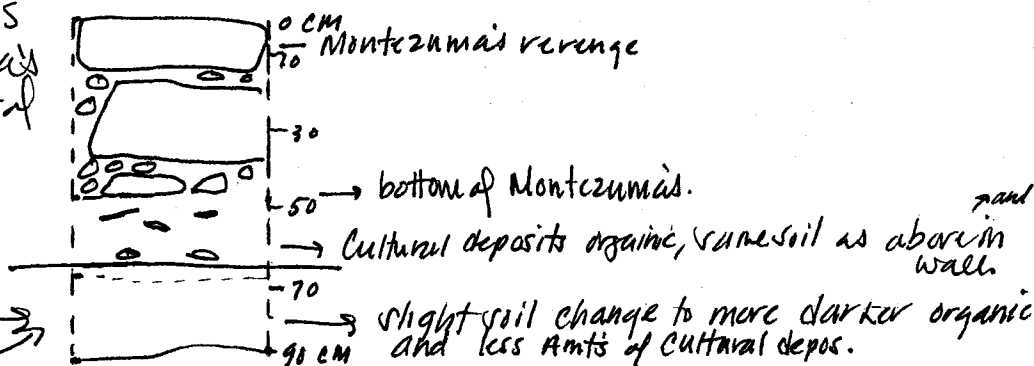 s
0 CM
a's
10 Montezuma's revenge
of
30
50 → bottom of Montezuma's.
and
→ Cultural deposits orgainic, same soil as above in
wall.
70
→ slight soil change to more darker organic
90 CM and less Amt's of Cultural depos.